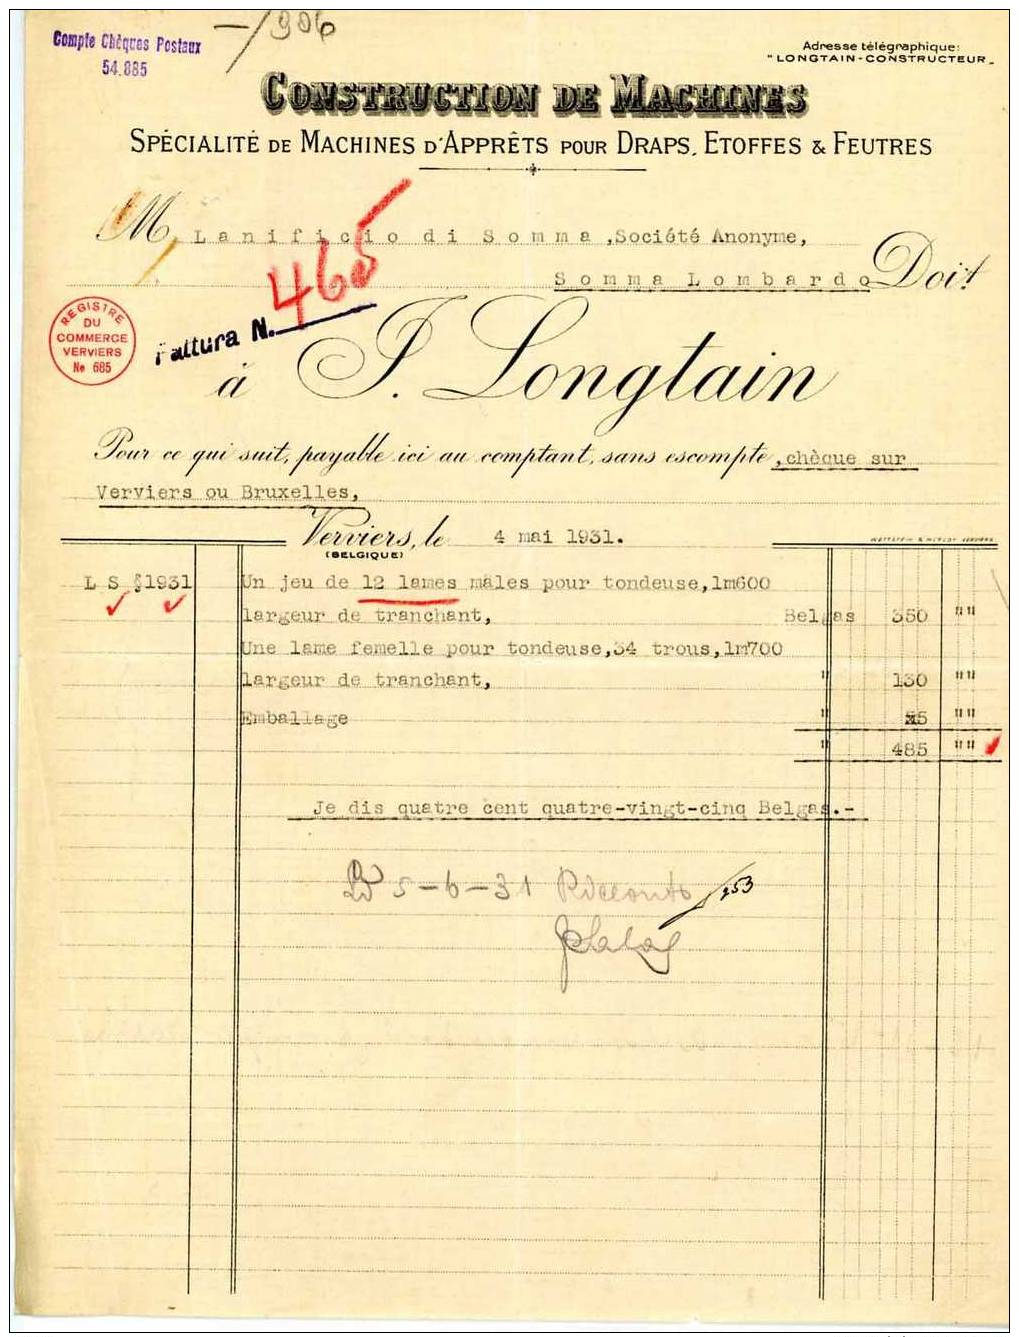 Compte Chèques Postaux
54.885
-/906
Adresse télégraphique:
"LONGTAIN-CONSTRUCTEUR"
CONSTRUCTION DE MACHINES
SPÉCIALITÉ DE MACHINES D'APPRÊTS POUR DRAPS, ETOFFES & FEUTRES
M, Lanificio di Somma, Société Anonyme,
Somma Lombardo Doit
465
Fattura N.
REGISTRE
DU
COMMERCE
VERVIERS
No 685
à J. Longtain
Pour ce qui suit, payable ici au comptant, sans escompte, chèque sur
Verviers ou Bruxelles,
Verviers, le 4 mai 1931.
(BELGIQUE)
L S §1931 Un jeu de 12 lames mâles pour tondeuse, 1m600
largeur de tranchant, Belgas 350 ""
Une lame femelle pour tondeuse, 34 trous, 1m700
largeur de tranchant, " 130 ""
Emballage " 5 ""
" 485 ""
Je dis quatre cent quatre-vingt-cinq Belgas.-
5-6-31 253